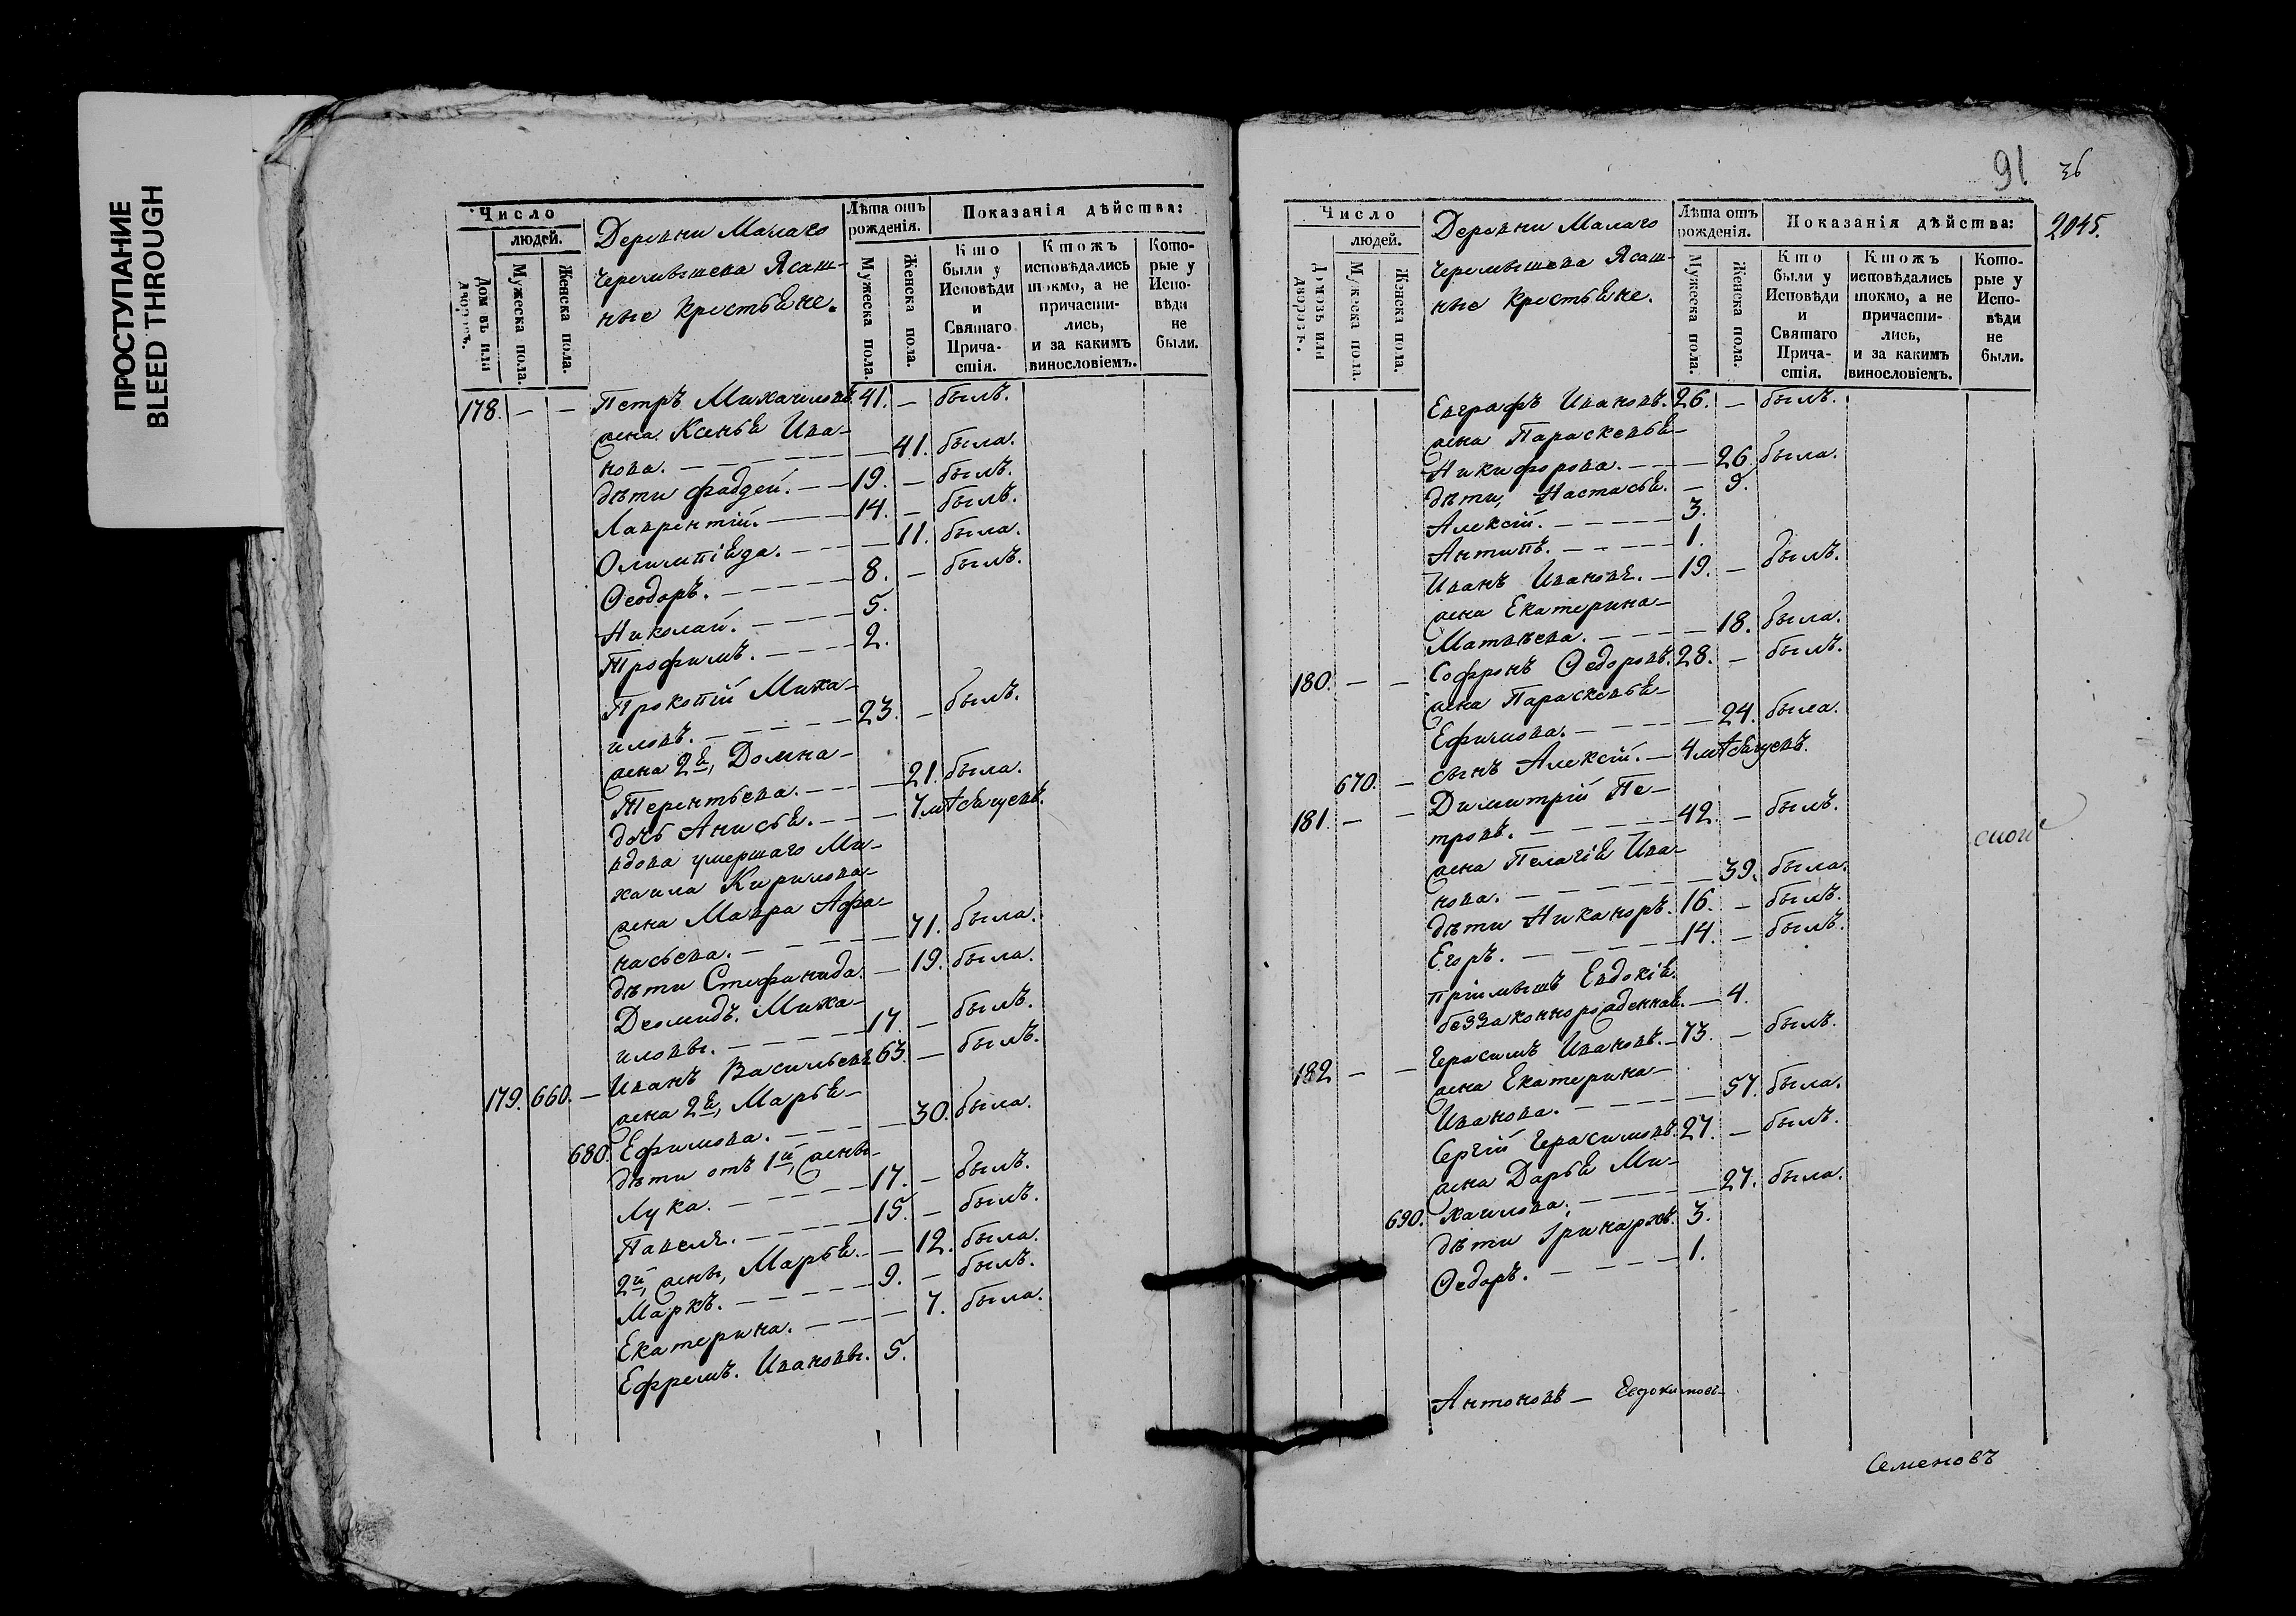 ПРОСТУПАНИЕ
BLEED THROUGH
Число
людей.
Домовъ или дворовъ.
Мужеска пола.
Женска пола.
Деревни Малаго
Черемышева Ясаш-
ные крестьяне.
Лѣта отъ рожденія.
Мужеска пола.
Женска пола.
Показанія дѣйства:
Кто были у Исповѣди и Святаго Причастія.
Ктожъ исповѣдались токмо, а не причастились, и за какимъ винословіемъ.
Которые у Исповѣди не были.
178. — — Петръ Михайловъ 41. — былъ.
жена Ксенья Ива-
нова. — 41. была.
дѣти Фаддей. — 19. — былъ.
Лаврентій. — 14. — былъ.
Олимпіяда. — 11. была.
Ѳеодоръ. — 8. — былъ.
Николай. — 5.
Трофимъ. — 2.
Прокопій Миха-
иловъ. — 23. — былъ.
жена 2я, Домна
Терентьева. — 21. была.
дочь Анисья. — 7 мѣсяцевъ.
вдова умершаго Ми-
хаила Кирилова
жена Мавра Афа-
насьева. — 71. была.
дѣти Стефанида. — 19. была.
Деомидъ. Миха-
иловы. — 17. — былъ.
179. 660. — Иванъ Васильевъ 63. — былъ.
жена 2я, Марья
680. Ефимова. — 30. была.
дѣти отъ 1й, жены
Лука. — 17. — былъ.
Павелъ. — 15. — былъ.
2й, жены, Марья. — 12. была.
Маркъ. — 9. — былъ.
Екатерина. — 7. была.
Ефремъ. Ивановы. 5.
91 36
2045.
Число
людей.
Домовъ или дворовъ.
Мужеска пола.
Женска пола.
Деревни Малаго
Черемышева Ясаш-
ные крестьяне.
Лѣта отъ рожденія.
Мужеска пола.
Женска пола.
Показанія дѣйства:
Кто были у Исповѣди и Святаго Причастія.
Ктожъ исповѣдались токмо, а не причастились, и за какимъ винословіемъ.
Которые у Исповѣди не были.
Евграфъ Ивановъ. 26. — былъ.
жена Параскевья
Никифорова. — 26. была.
дѣти, Настасья. — 9.
Алексій. — 3.
Антипъ. — 1.
Иванъ Ивановъ. — 19. — былъ.
жена Екатерина
Матвѣева. — 18. была.
180. — — Софронъ Ѳедоровъ. 28. — былъ.
жена Параскевья
Ефимова. — 24. была.
670. — сынъ Алексій. — 4 мѣсяцевъ.
181. — — Димитрій Пе-
тровъ. — 42. — былъ.
жена Пелагія Ива-
нова. — 39. была.
дѣти Никаноръ. 16. — былъ.
Егоръ. — 14. — былъ.
пріимышъ Евдокія
беззаконнорожденная. — 4.
182 — — Герасимъ Ивановъ. — 73. — былъ.
жена Екатерина
Иванова. — 57. была.
Сергій Герасимовъ. 27. — былъ.
жена Дарья Ми-
690. хаилова. — 27. была.
дѣти Іринархъ. 3.
Ѳедоръ. — 1.
Антоновъ — Евдокимовъ
Семеновъ